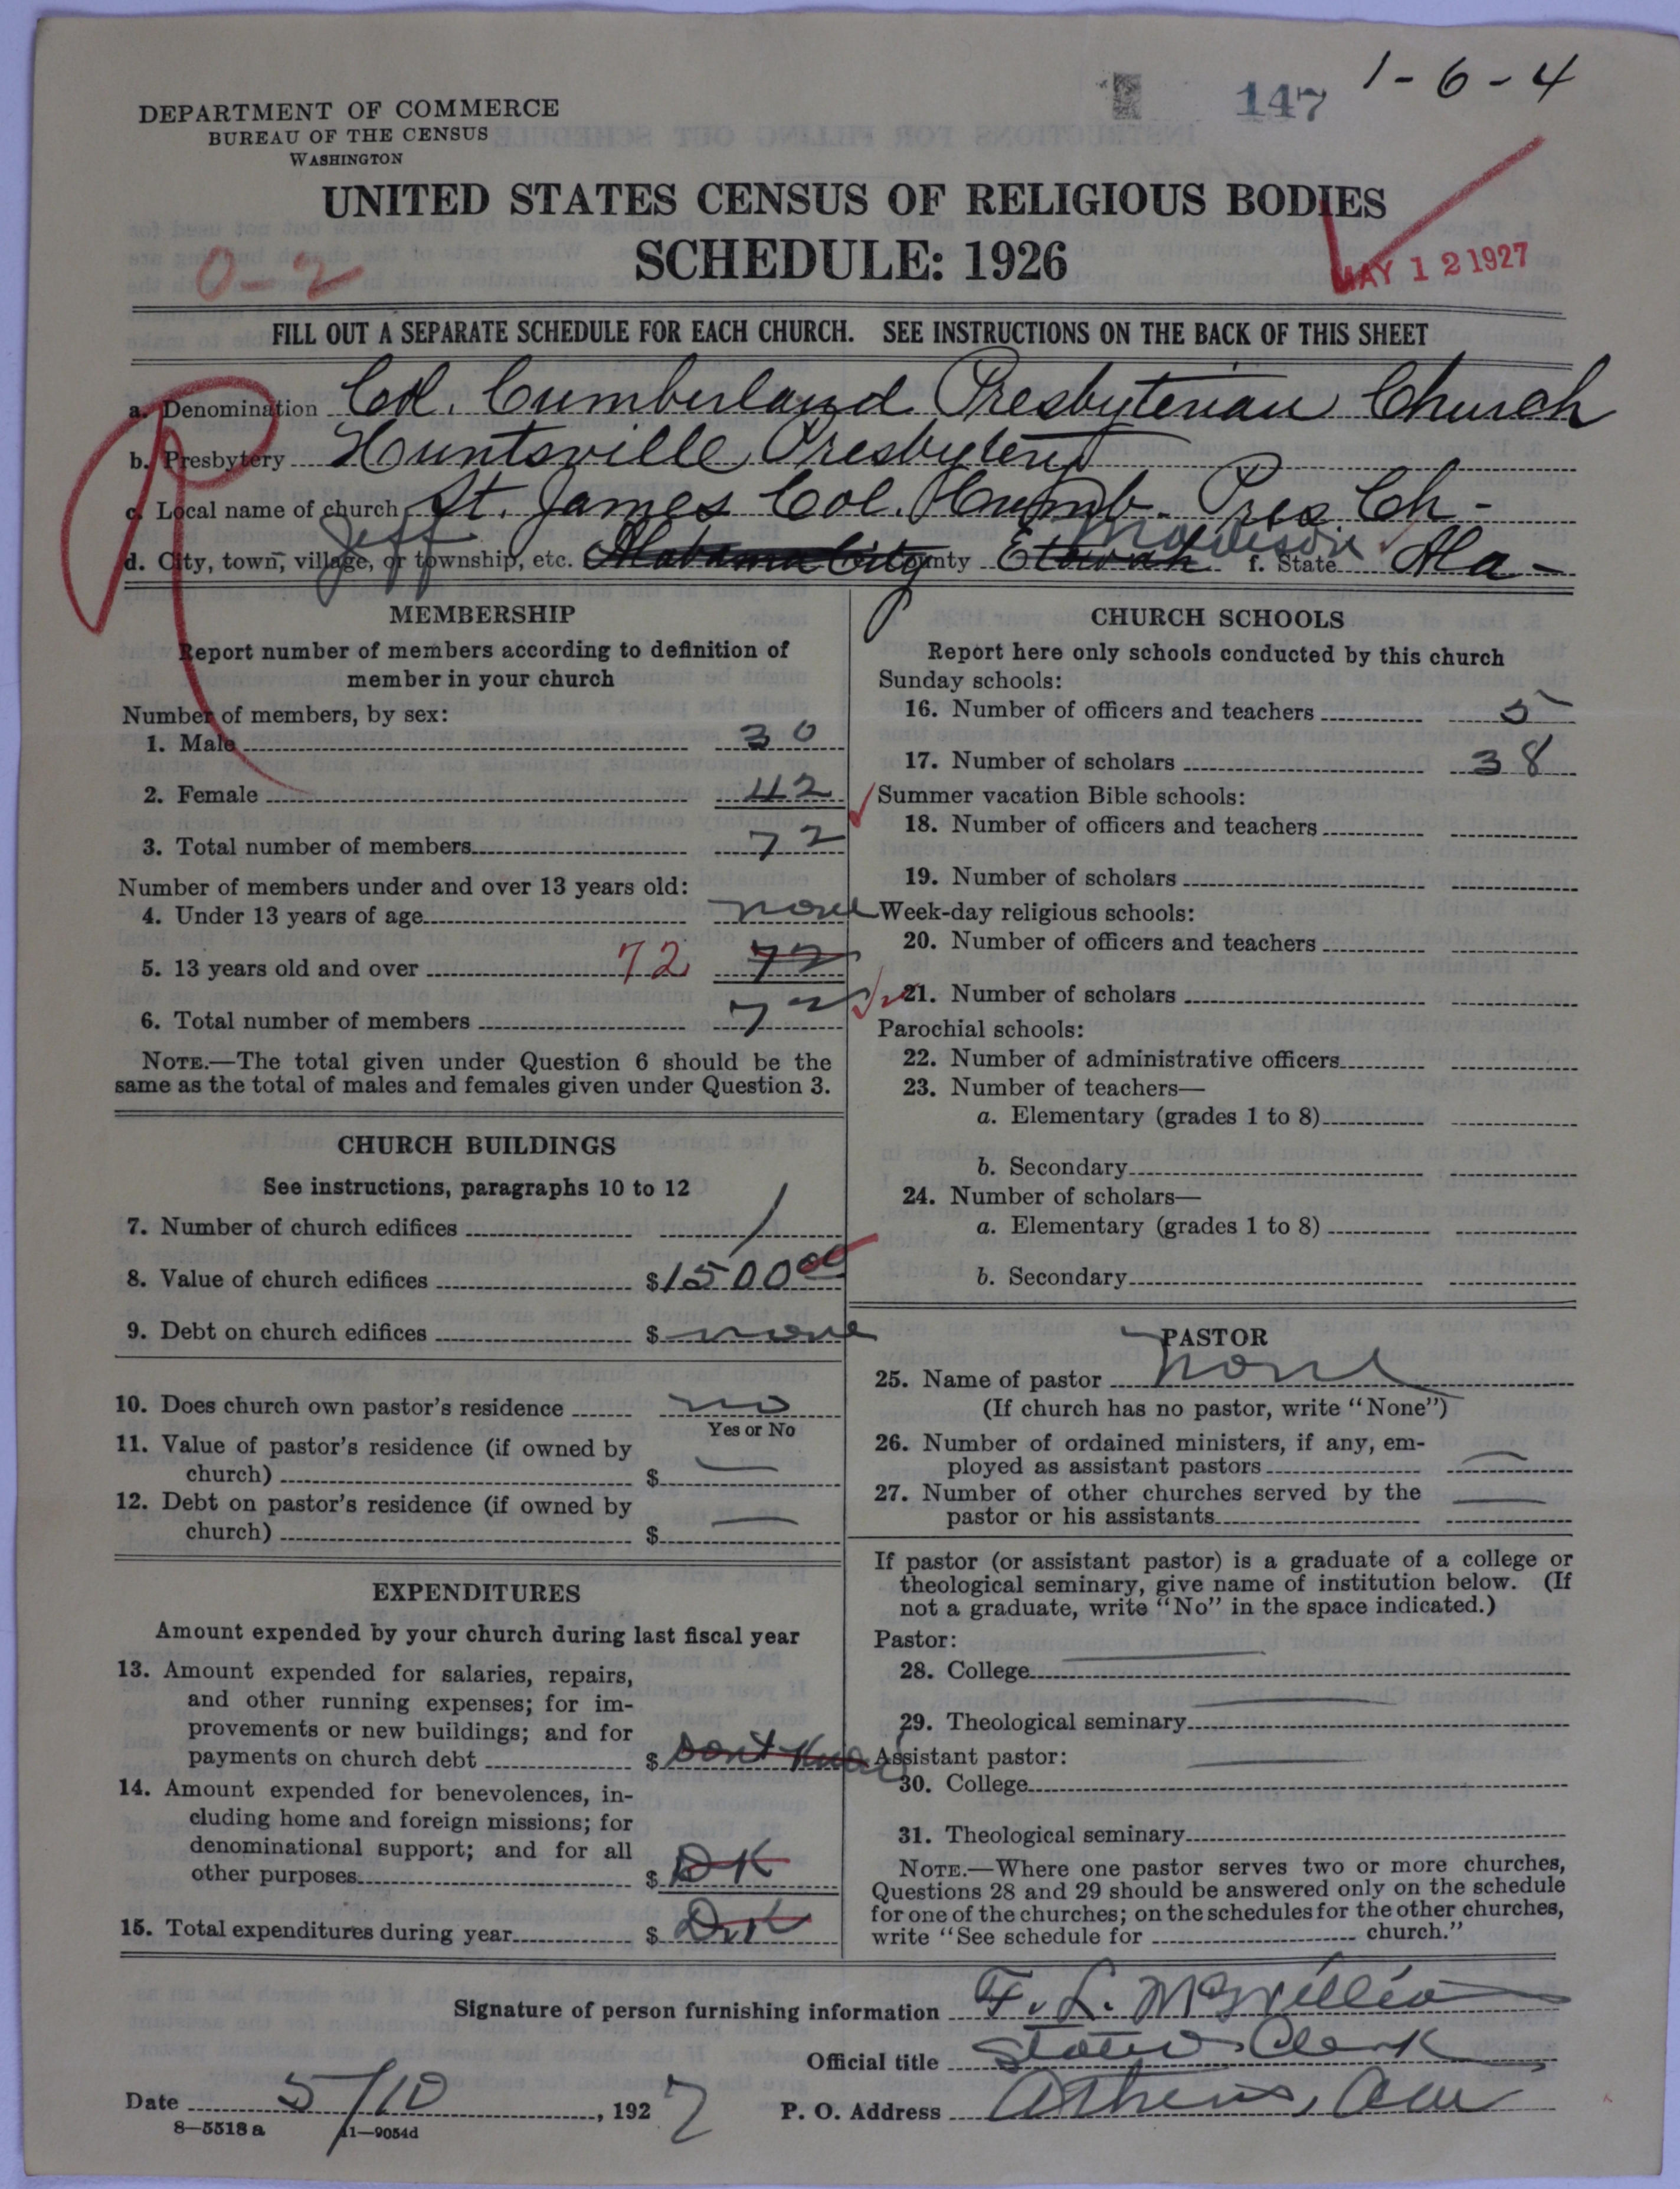 1-6-4
147
DEPARTMENT OF COMMERCE
BUREAU OF THE CENSUS
WASHINGTON
UNITED STATES CENSUS OF RELIGIOUS BODIES
SCHEDULE: 1926
MAY 12 1927
0-2
FILL OUT A SEPARATE SCHEDULE FOR EACH CHURCH. SEE INSTRUCTIONS ON THE BACK OF THIS SHEET
a. Denomination Col. Cumberland Presbyterian Church
b. Presbytery Huntsville Presbytery
c. Local name of church St. James Col. Cumb. Pres. Ch-
Jeff Madison
d. City, town, village, or township, etc. Alabama City County Etowah f. State Ala-
MEMBERSHIP
Report number of members according to definition of
member in your church
Number of members, by sex:
1. Male 30
2. Female 42
3. Total number of members 72
Number of members under and over 13 years old:
4. Under 13 years of age none
5. 13 years old and over 72 72
6. Total number of members 72
NOTE.—The total given under Question 6 should be the
same as the total of males and females given under Question 3.
CHURCH BUILDINGS
See instructions, paragraphs 10 to 12
7. Number of church edifices 1
8. Value of church edifices $1500 00
9. Debt on church edifices $ none
10. Does church own pastor's residence no
Yes or No
11. Value of pastor's residence (if owned by
church) $ —
12. Debt on pastor's residence (if owned by
church) $ —
EXPENDITURES
Amount expended by your church during last fiscal year
13. Amount expended for salaries, repairs,
and other running expenses; for im-
provements or new buildings; and for
payments on church debt $ Dont Know
14. Amount expended for benevolences, in-
cluding home and foreign missions; for
denominational support; and for all
other purposes $ DK
15. Total expenditures during year $ D.K
CHURCH SCHOOLS
Report here only schools conducted by this church
Sunday schools:
16. Number of officers and teachers 5
17. Number of scholars 38
Summer vacation Bible schools:
18. Number of officers and teachers
19. Number of scholars
Week-day religious schools:
20. Number of officers and teachers
21. Number of scholars
Parochial schools:
22. Number of administrative officers
23. Number of teachers—
a. Elementary (grades 1 to 8)
b. Secondary
24. Number of scholars—
a. Elementary (grades 1 to 8)
b. Secondary
PASTOR
25. Name of pastor None
(If church has no pastor, write "None")
26. Number of ordained ministers, if any, em-
ployed as assistant pastors —
27. Number of other churches served by the
pastor or his assistants —
If pastor (or assistant pastor) is a graduate of a college or
theological seminary, give name of institution below. (If
not a graduate, write "No" in the space indicated.)
Pastor:
28. College —
29. Theological seminary —
Assistant pastor:
30. College —
31. Theological seminary
NOTE.—Where one pastor serves two or more churches,
Questions 28 and 29 should be answered only on the schedule
for one of the churches; on the schedules for the other churches,
write "See schedule for church."
Signature of person furnishing information F. L. McWillia
Official title Stated Clerk
Date 5/10, 1927 P. O. Address Athens, Ala
8—5518a 11—9054d